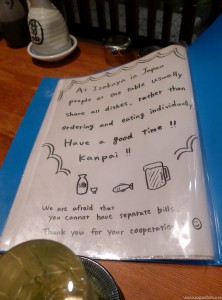 At Izakaya in Japan
people at one table usually
share all dishes, rather than
ordering and eating individually.
Have a good time !!
Kanpai !!
We are afraid that
you cannot have separate bills.
Thank you for your cooperation